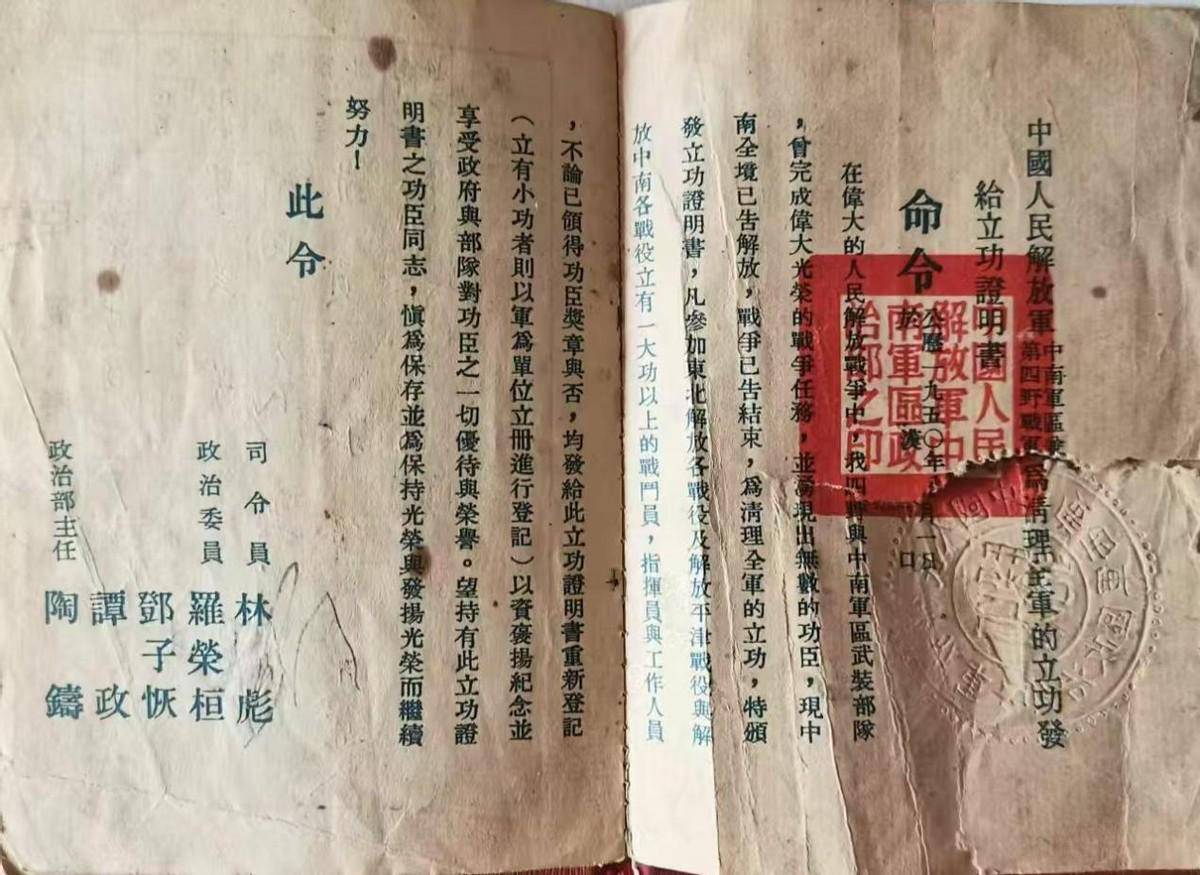 中國人民解放軍中南軍區第四野戰軍爲清理全軍的立功發
給立功證明書
命令
公曆一九五〇年 月一日
於漢口
在偉大的人民解放戰爭中，我四野與中南軍區武裝部隊
，曾完成偉大光榮的戰爭任務，並湧現出無數的功臣，現中
南全境已告解放，戰爭已告結束，爲清理全軍的立功，特頒
發立功證明書，凡參加東北解放各戰役及解放平津戰役與解
放中南各戰役立有一大功以上的戰鬥員，指揮員與工作人員
，不論已領得功臣獎章與否，均發給此立功證明書重新登記
（立有小功者則以軍爲單位立冊進行登記）以資褒揚紀念並
享受政府與部隊對功臣之一切優待與榮譽。望持有此立功證
明書之功臣同志，愼爲保存並爲保持光榮與發揚光榮而繼續
努力！
此令
司令員 林彪
政治委員 羅榮桓
鄧子恢
譚政
政治部主任 陶鑄
中國人民
解放軍中
南軍區政
治部之印